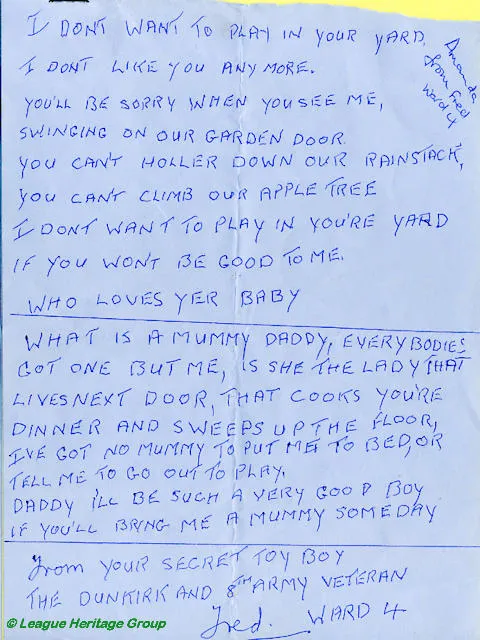 I DONT WANT TO PLAY IN YOUR YARD.
I DONT LIKE YOU ANYMORE.
YOU'LL BE SORRY WHEN YOU SEE ME,
SWINGING ON OUR GARDEN DOOR.
YOU CAN'T HOLLER DOWN OUR RAINSTACK,
YOU CAN'T CLIMB OUR APPLE TREE
I DONT WANT TO PLAY IN YOU'RE YARD
IF YOU WON'T BE GOOD TO ME.
WHO LOVES YER BABY
Amanda
from Fred
Ward 4
WHAT IS A MUMMY DADDY, EVERYBODIES
GOT ONE BUT ME, IS SHE THE LADY THAT
LIVES NEXT DOOR, THAT COOKS YOU'RE
DINNER AND SWEEPS UP THE FLOOR,
I'VE GOT NO MUMMY TO PUT ME TO BED, OR
TELL ME TO GO OUT TO PLAY.
DADDY I'LL BE SUCH A VERY GOOD BOY
IF YOU'LL BRING ME A MUMMY SOMEDAY
From YOUR SECRET TOY BOY
THE DUNKIRK AND 8TH ARMY VETERAN
Fred. WARD 4
© League Heritage Group